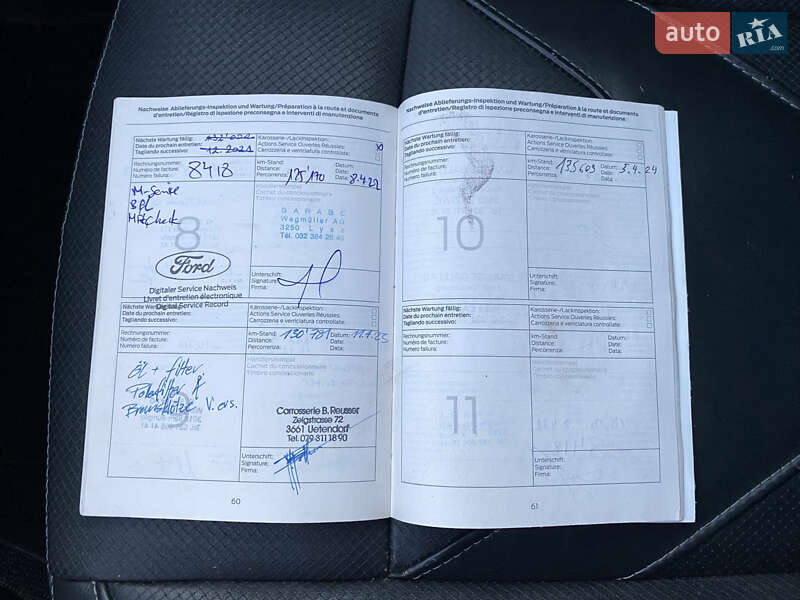 auto RIA.com
Nachweise Ablieferungs-Inspektion und Wartung/Préparation à la route et documents
d'entretien/Registro di ispezione preconsegna e interventi di manutenzione
Nächste Wartung fällig:
Date du prochain entretien:
Tagliando successivo:
12.2021
Karosserie-/Lackinspektion:
Actions Service Ouverles Réussies:
Carrozzeria e verniciatura controllate:
Rechnungsnummer:
Numéro de facture:
Numero fattura:
8418
km-Stand:
Distance:
Percorrenza:
125'170
Datum:
Date:
Data:
8.4.22
8
GARAGE
Wegmüller AG
3250 Lyss
Tel. 032 384 28 45
Ford
Digitaler Service Nachweis
Livret d'entretien électronique
Digital Service Record
Unterschrift:
Signature:
Firma:
Nächste Wartung fällig:
Date du prochain entretien:
Tagliando successivo:
Karosserie-/Lackinspektion:
Actions Service Ouverles Réussies:
Carrozzeria e verniciatura controllate:
Rechnungsnummer:
Numéro de facture:
Numero fattura:
km-Stand:
Distance:
Percorrenza:
130'781
Datum:
Date:
Data:
11.1.23
Händlerstempel
Cachet du concessionnaire
Timbro concessionario
Öl + filter
Pollenfilter
Bremsklötze V. ers.
Carrosserie B. Reusser
Zelgstrasse 72
3661 Uetendorf
Tel. 079 311 18 90
Unterschrift:
Signature:
Firma:
60
Nachweise Ablieferungs-Inspektion und Wartung/Préparation à la route et documents
d'entretien/Registro di ispezione preconsegna e interventi di manutenzione
Nächste Wartung fällig:
Date du prochain entretien:
Tagliando successivo:
Karosserie-/Lackinspektion:
Actions Service Ouverles Réussies:
Carrozzeria e verniciatura controllate:
Rechnungsnummer:
Numéro de facture:
Numero fattura:
km-Stand:
Distance:
Percorrenza:
135609
Datum:
Date:
Data:
5.4.24
Händlerstempel
Cachet du concessionnaire
Timbro concessionario
10
Unterschrift:
Signature:
Firma:
Nächste Wartung fällig:
Date du prochain entretien:
Tagliando successivo:
Karosserie-/Lackinspektion:
Actions Service Ouverles Réussies:
Carrozzeria e verniciatura controllate:
Rechnungsnummer:
Numéro de facture:
Numero fattura:
km-Stand:
Distance:
Percorrenza:
Datum:
Date:
Data:
Händlerstempel
Cachet du concessionnaire
Timbro concessionario
11
Unterschrift:
Signature:
Firma:
61